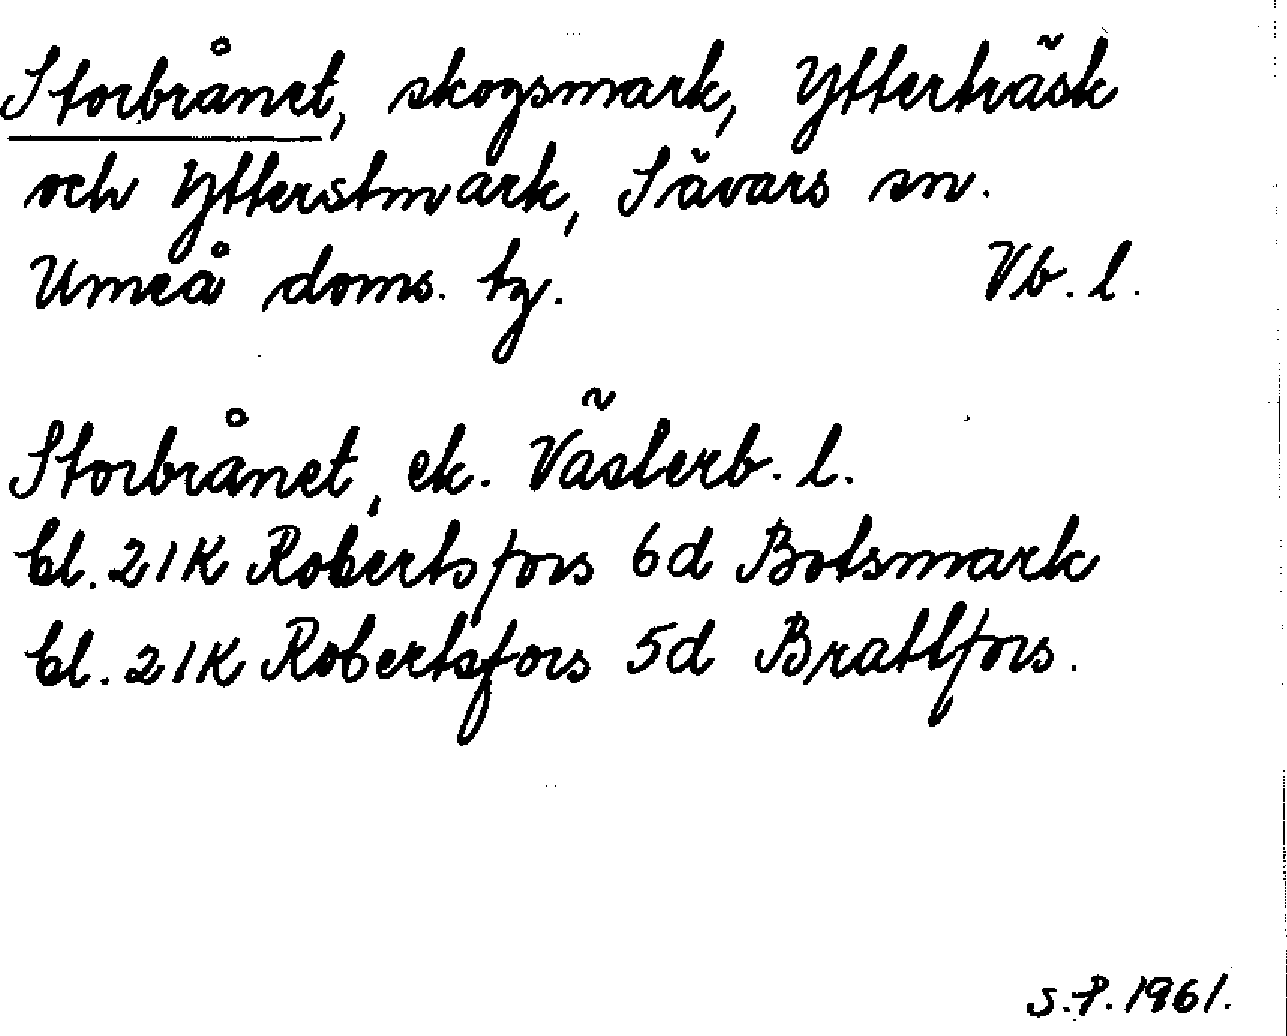 Storbrånet, skogsmark, Ytterträsk
och Ytterstmark, Sävars sn.
Umeå doms. tg. Vb. l.
Storbrånet, ek. Västerb. l.
bl. 21K Robertsfors 6d Botsmark
bl. 21K Robertsfors 5d Brattfors.
S.P. 1961.